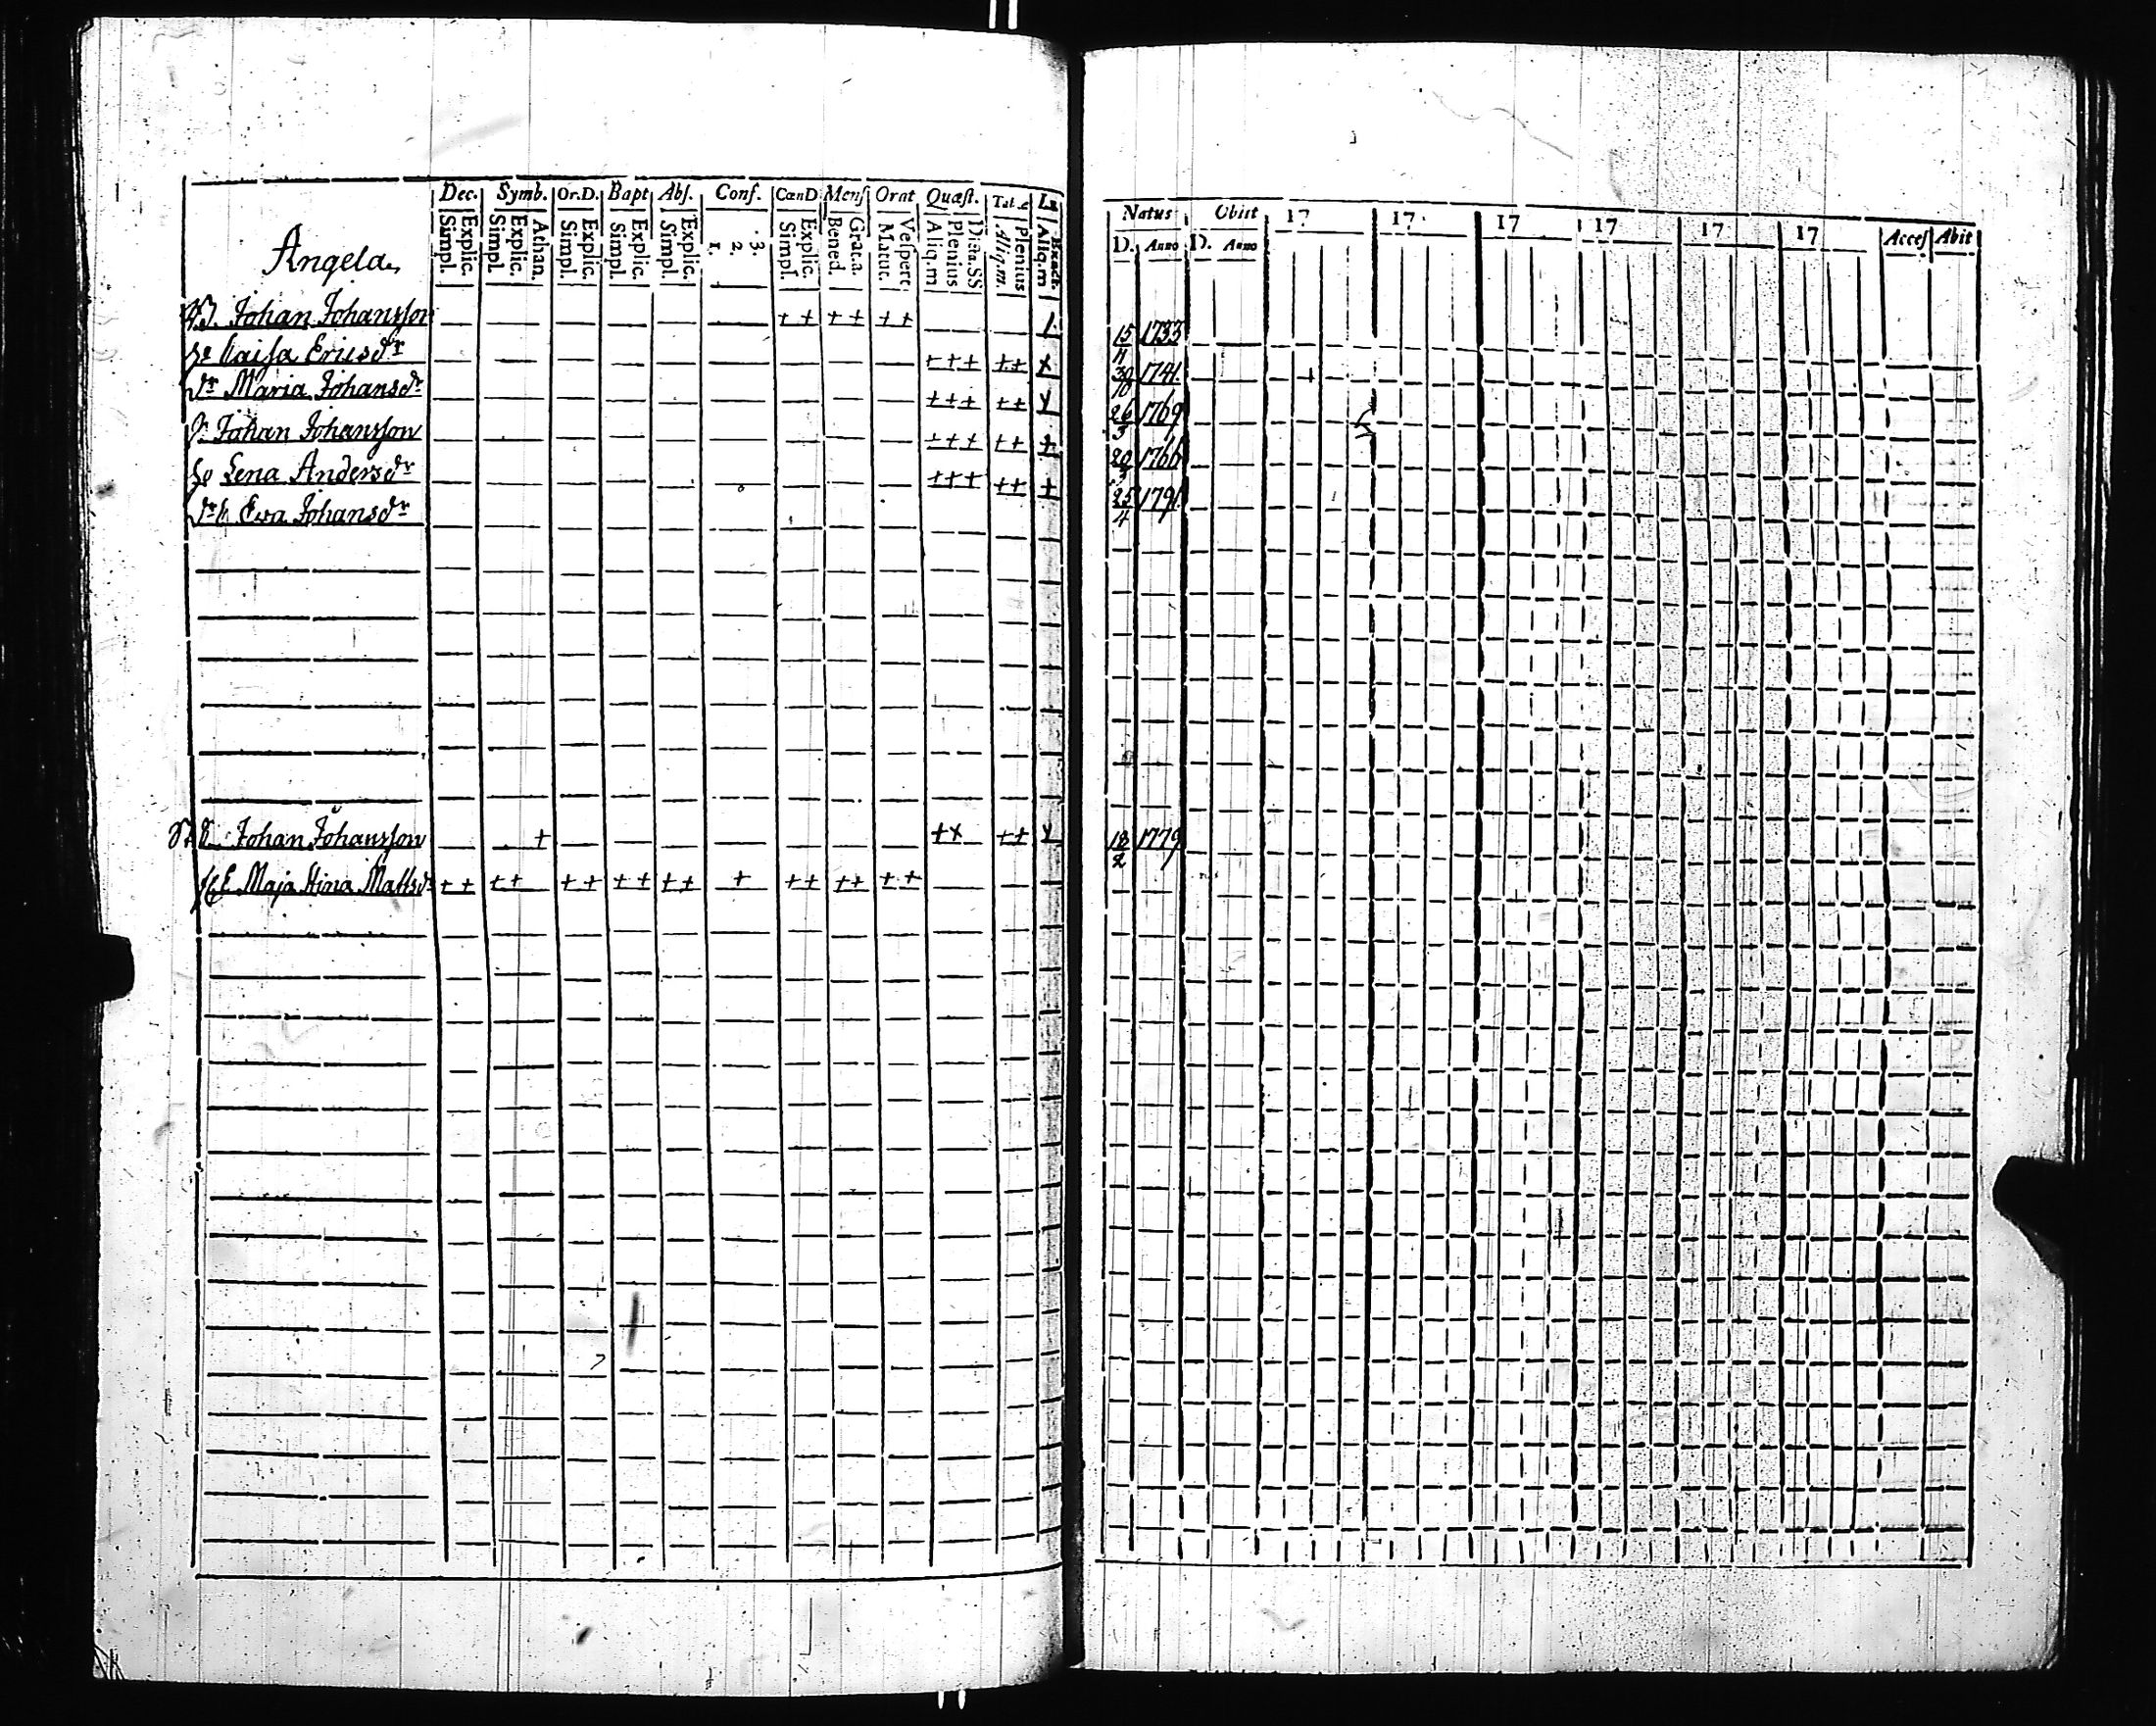 Dec. Symb. Or.D. Bapt Abs. Conf. CœnD Mens Orat Quæst. Tab.æ
Simpl. Explic. Simpl Explic. Athan. Simpl. Explic. Simpl. Explic. Simpl. Explic. 1. 2. 3. Simpl. Explic. Bened. Grat.a. Matut. Vespert. Aliq.m Plenius Dicta SS Aliq.m. Plenius Aliq.m Exact.
Angela
Johan Johansson + + + + + +
Caisa Ericsdr + + + + + +
dr Maria Johansdr + + + + +
Johan Johansson + + + + + +
Lena Andersdr + + + + + +
Ewa Johansdr
Johan Johansson + + + + +
Maja Stina Mattsdr + + + + + + + + + + + + + + + + +
Natus Obiit 17 17 17 17 17 17 Acces Abit
D. Anno D. Anno
15 1733
11
30 1741 +
10
26 1769
3
20 1766
3
25 1791
4
18 1779
2